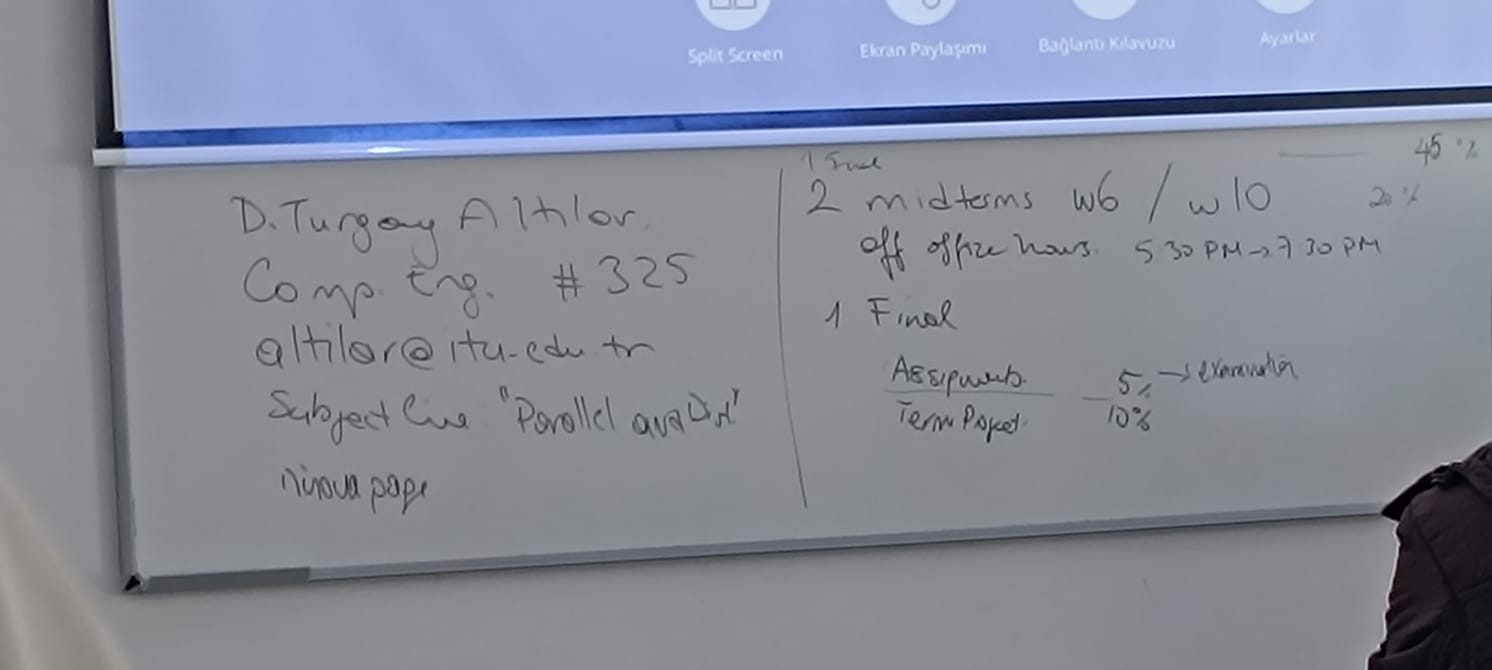 Split Screen
Ekran Paylaşımı
Bağlantı Kılavuzu
Ayarlar
D. Turgay Altılar
Comp. Eng. #325
altilar@itu.edu.tr
Subject line "Parallel and Dist"
ninova page
1
45 %
2 midterms w6 / w10
20 %
off office hours. 5 30 PM → 7 30 PM
1 Final
Assignments
5% →
Term Project
10%